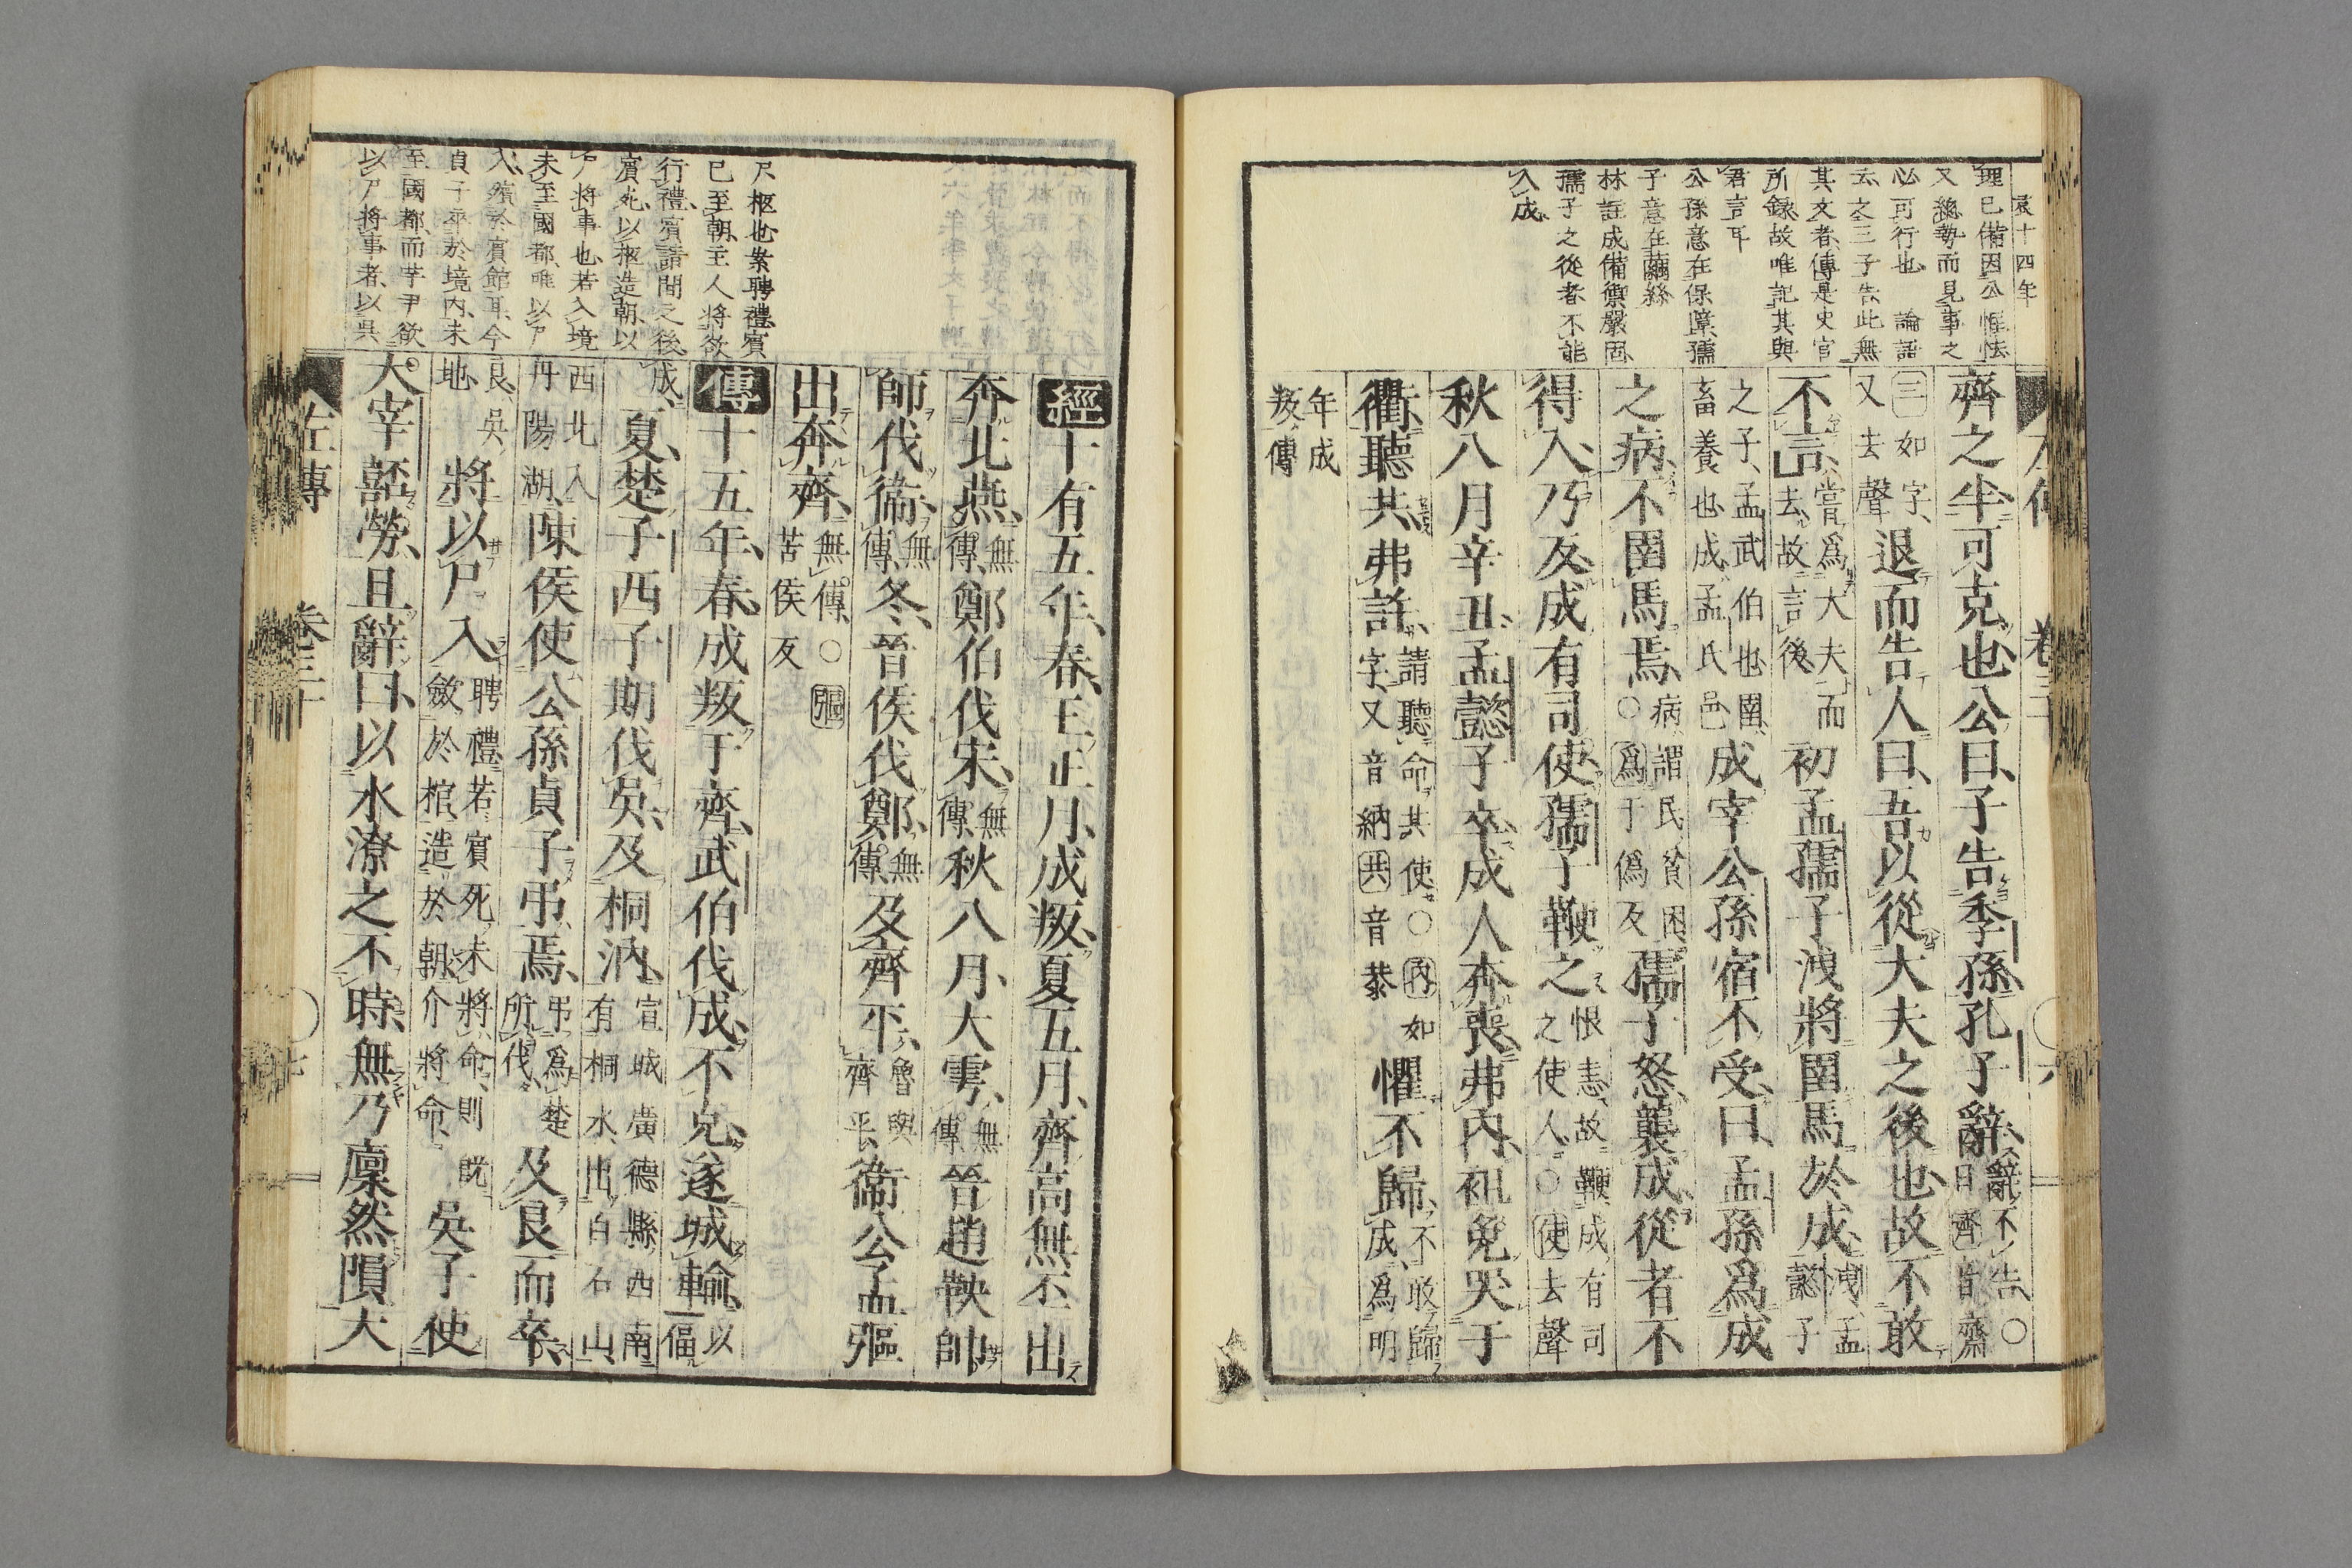 哀十四年
理已備因公惟怯
又總勢而見事之
必可行也　論語
云之三子告此無
其文者傳是史官
所錄故唯記其與
君言耳
公孫意在保障孺
子意在繭絲
林註成備禦嚴固
孺子之從者不能
入成
齊之半可克也公曰子告季孫孔子辭辭不告○
曰齊音齋
三如字
又去聲退而告人曰吾以從大夫之後也故不敢
不言嘗爲大夫而
去故言後初孟孺子洩將圉馬於成洩孟
懿子
之子孟武伯也圉
畜養也成孟氏邑成宰公孫宿不受曰孟孫爲成
之病不圉馬焉病謂民貧困
○爲于僞反孺子怒襲成從者不
得入乃反成有司使孺子鞭之恨恚故鞭成有司
之使人○使去聲
秋八月辛丑孟懿子卒成人奔喪弗內袒免哭于
衢聽共弗許請聽命其使○內如
字又音納共音恭懼不歸不敢歸
成爲明
年成
叛傳
經十有五年春王正月成叛夏五月齊高無㔻出
奔北燕無
傳鄭伯伐宋無
傳秋八月大雩無
傳晉趙鞅帥
師伐衞無
傳冬晉侯伐鄭無
傳及齊平魯與
齊平衞公孟彄
出奔齊無傳○彄
苦侯反
傳十五年春成叛于齊武伯伐成不克遂城輸以
偪
成夏楚子西子期伐吳及桐汭宣城廣德縣西南
有桐水出白石山
西北入
丹陽湖陳侯使公孫貞子弔焉弔爲楚
所伐及良而卒
良吳
地將以尸入聘禮若賓死未將命則既
斂於棺造於朝介將命吳子使
大宰嚭勞且辭曰以水潦之不時無乃廩然隕大
尸柩也案聘禮賓
已至朝主人將欲
行禮賓請間之後
賓死以柩造朝以
尸將事也若入境
未至國都唯以尸
入殯於賓館耳今
貞子卒於境內未
至國都而芋尹欲
以尸將事者以吳
左傳　卷三十